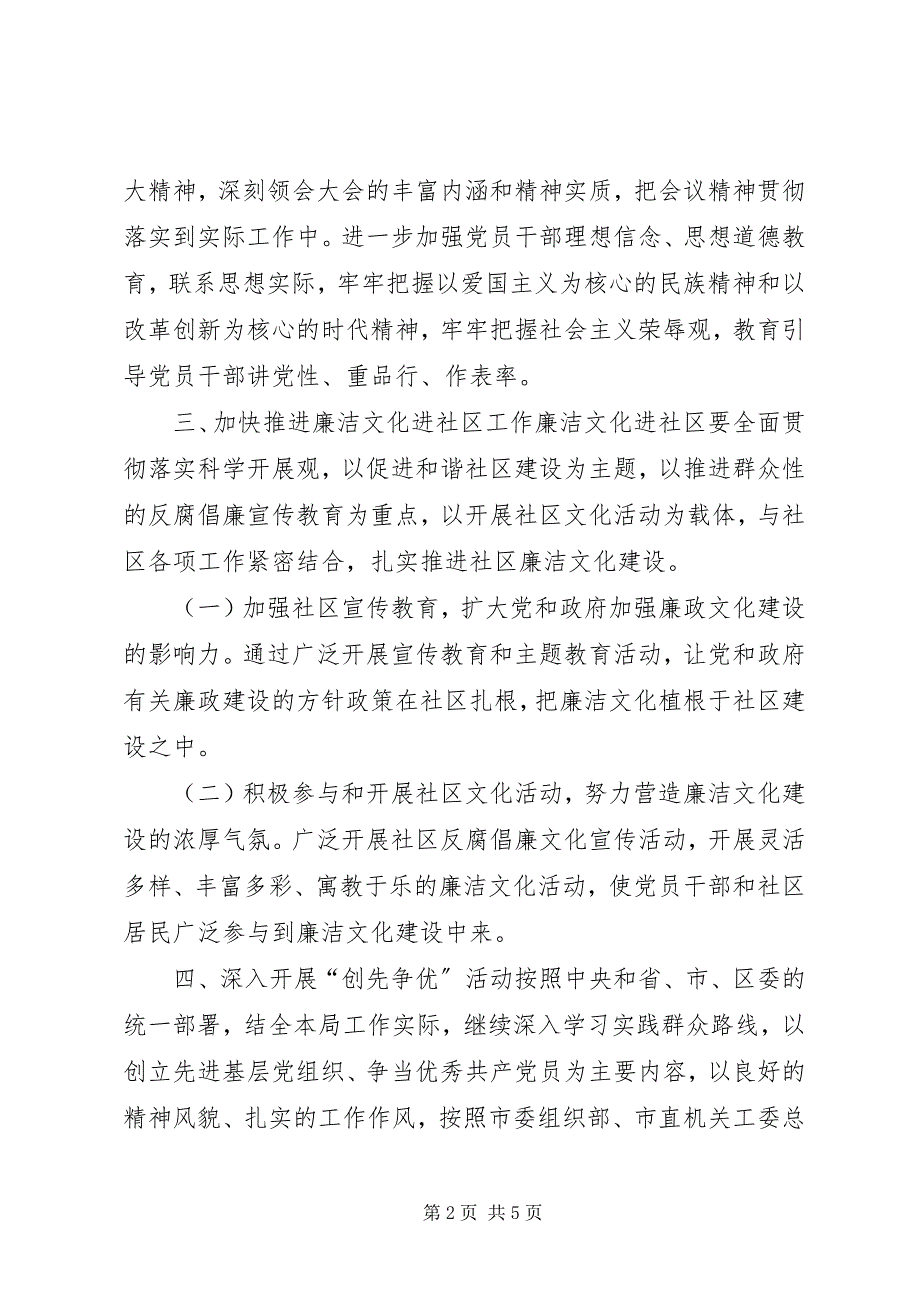 大精神，深刻领会大会的丰富内涵和精神实质，把会议精神贯彻
落实到实际工作中。进一步加强党员干部理想信念、思想道德教
育，联系思想实际，牢牢把握以爱国主义为核心的民族精神和以
改革创新为核心的时代精神，牢牢把握社会主义荣辱观，教育引
导党员干部讲党性、重品行、作表率。
三、加快推进廉洁文化进社区工作廉洁文化进社区要全面贯
彻落实科学开展观，以促进和谐社区建设为主题，以推进群众性
的反腐倡廉宣传教育为重点，以开展社区文化活动为载体，与社
区各项工作紧密结合，扎实推进社区廉洁文化建设。
（一）加强社区宣传教育，扩大党和政府加强廉政文化建设
的影响力。通过广泛开展宣传教育和主题教育活动，让党和政府
有关廉政建设的方针政策在社区扎根，把廉洁文化植根于社区建
设之中。
（二）积极参与和开展社区文化活动，努力营造廉洁文化建
设的浓厚气氛。广泛开展社区反腐倡廉文化宣传活动，开展灵活
多样、丰富多彩、寓教于乐的廉洁文化活动，使党员干部和社区
居民广泛参与到廉洁文化建设中来。
四、深入开展“创先争优〞活动按照中央和省、市、区委的
统一部署，结全本局工作实际，继续深入学习实践群众路线，以
创立先进基层党组织、争当优秀共产党员为主要内容，以良好的
精神风貌、扎实的工作作风，按照市委组织部、市直机关工委总
第 2 页 共 5 页